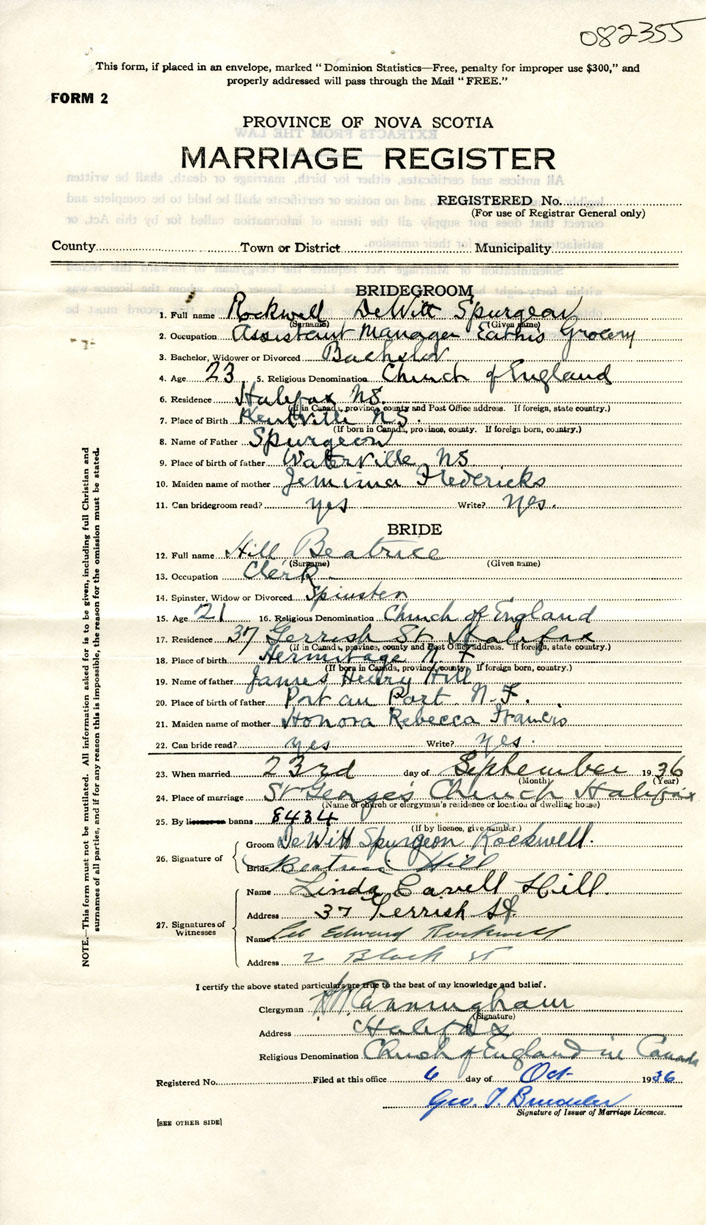 082355
This form, if placed in an envelope, marked "Dominion Statistics—Free, penalty for improper use $300," and
properly addressed will pass through the Mail "FREE."
FORM 2
PROVINCE OF NOVA SCOTIA
MARRIAGE REGISTER
REGISTERED No.
(For use of Registrar General only)
County Town or District Municipality
BRIDEGROOM
1. Full name Rockwell DeWitt Spurgeon
(Surname) (Given name)
2. Occupation Assistant Manager Grocery
3. Bachelor, Widower or Divorced Bachelor
4. Age 23 5. Religious Denomination Church of England
6. Residence Halifax N.S.
(If in Canada, province, county and Post Office address. If foreign, state country.)
7. Place of Birth Kentville N.S.
(If born in Canada, province, county. If foreign born, country.)
8. Name of Father Spurgeon
9. Place of birth of father Waterville N.S
10. Maiden name of mother Jemima Fredericks
11. Can bridegroom read? yes Write? yes.
BRIDE
12. Full name Hill Beatrice
(Surname) (Given name)
13. Occupation Clerk
14. Spinster, Widow or Divorced Spinster
15. Age 21 16. Religious Denomination Church of England
17. Residence 37 Gerrish St Halifax
(If in Canada, province, county and Post Office address. If foreign, state country.)
18. Place of birth Hermitage N.F.
(If born in Canada, province, county. If foreign born, country.)
19. Name of father James Henry Hill
20. Place of birth of father Port au Port. N.F.
21. Maiden name of mother Honora Rebecca Francis
22. Can bride read? yes Write? yes.
23. When married 23rd day of September 1936
(Month) (Year)
24. Place of marriage St George's Church Halifax
(Name of church or clergyman's residence or location of dwelling house)
25. By license or banns 8434
(If by licence, give number.)
26. Signature of
Groom DeWitt Spurgeon Rockwell.
Bride Beatrice Hill
27. Signatures of Witnesses
Name Linda Cavell Hill.
Address 37 Gerrish St.
Name Edward Rockwell
Address 2 Black St
I certify the above stated particulars are true to the best of my knowledge and belief.
Clergyman Cunningham
(Signature)
Address Halifax
Religious Denomination Church of England in Canada
Registered No. Filed at this office 6 day of Oct 1936
Geo. T.
Signature of Issuer of Marriage Licences.
[SEE OTHER SIDE]
NOTE.—This form must not be mutilated. All information asked for is to be given, including full Christian and
surnames of all parties, and if for any reason this is impossible, the reason for the omission must be stated.